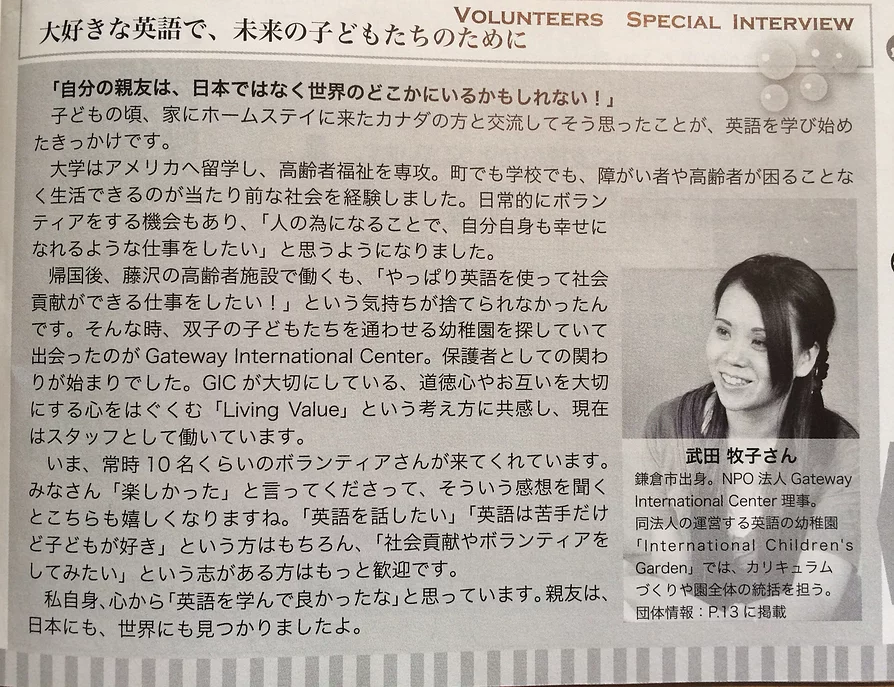 VOLUNTEERS SPECIAL INTERVIEW
大好きな英語で、未来の子どもたちのために
「自分の親友は、日本ではなく世界のどこかにいるかもしれない！」
子どもの頃、家にホームステイに来たカナダの方と交流してそう思ったことが、英語を学び始め
たきっかけです。
大学はアメリカへ留学し、高齢者福祉を専攻。町でも学校でも、障がい者や高齢者が困ることな
く生活できるのが当たり前な社会を経験しました。日常的にボラン
ティアをする機会もあり、「人の為になることで、自分自身も幸せに
なれるような仕事をしたい」と思うようになりました。
帰国後、藤沢の高齢者施設で働くも、「やっぱり英語を使って社会
貢献ができる仕事をしたい！」という気持ちが捨てられなかったん
です。そんな時、双子の子どもたちを通わせる幼稚園を探していて
出会ったのが Gateway International Center。保護者としての関わ
りが始まりでした。GIC が大切にしている、道徳心やお互いを大切
にする心をはぐくむ「Living Value」という考え方に共感し、現在
はスタッフとして働いています。
いま、常時 10 名くらいのボランティアさんが来てくれています。
みなさん「楽しかった」と言ってくださって、そういう感想を聞く
とこちらも嬉しくなりますね。「英語を話したい」「英語は苦手だけ
ど子どもが好き」という方はもちろん、「社会貢献やボランティアを
してみたい」という志がある方はもっと歓迎です。
私自身、心から「英語を学んで良かったな」と思っています。親友は、
日本にも、世界にも見つかりましたよ。
武田 牧子さん
鎌倉市出身。NPO 法人 Gateway
International Center 理事。
同法人の運営する英語の幼稚園
「International Children's
Garden」では、カリキュラム
づくりや園全体の統括を担う。
団体情報：P.13 に掲載